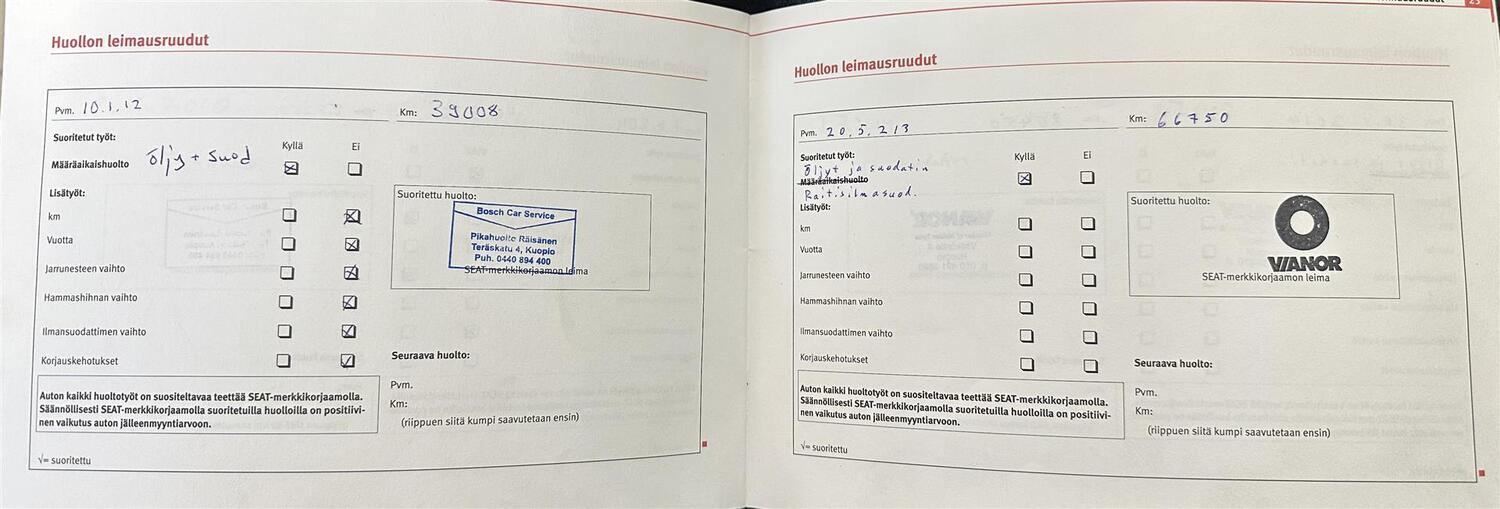 Huollon leimausruudut
Pvm. 10.1.12
Km: 39008
Suoritetut työt:
Kyllä Ei
Määräaikaishuolto öljy + suod
Lisätyöt:
km
Vuotta
Jarrunesteen vaihto
Hammashihnan vaihto
Ilmansuodattimen vaihto
Korjauskehotukset
Suoritettu huolto:
Bosch Car Service
Pikahuolto Räisänen
Teräskatu 4, Kuopio
Puh. 0440 894 400
SEAT-merkkikorjaamon leima
Seuraava huolto:
Pvm.
Km:
(riippuen siitä kumpi saavutetaan ensin)
Auton kaikki huoltotyöt on suositeltavaa teettää SEAT-merkkikorjaamolla.
Säännöllisesti SEAT-merkkikorjaamolla suoritetuilla huolloilla on positiivi-
nen vaikutus auton jälleenmyyntiarvoon.
√= suoritettu
23
Huollon leimausruudut
Pvm. 20.5.213
Km: 66750
Suoritetut työt:
Kyllä Ei
Öljyt ja suodatin
Määräaikaishuolto
Raitisilmasuod.
Lisätyöt:
km
Vuotta
Jarrunesteen vaihto
Hammashihnan vaihto
Ilmansuodattimen vaihto
Korjauskehotukset
Suoritettu huolto:
VIANOR
SEAT-merkkikorjaamon leima
Seuraava huolto:
Pvm.
Km:
(riippuen siitä kumpi saavutetaan ensin)
Auton kaikki huoltotyöt on suositeltavaa teettää SEAT-merkkikorjaamolla.
Säännöllisesti SEAT-merkkikorjaamolla suoritetuilla huolloilla on positiivi-
nen vaikutus auton jälleenmyyntiarvoon.
√= suoritettu